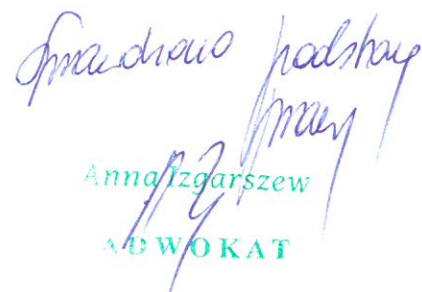 Sprawdzono podstawy
prawn
Anna Izgarszew
ADWOKAT